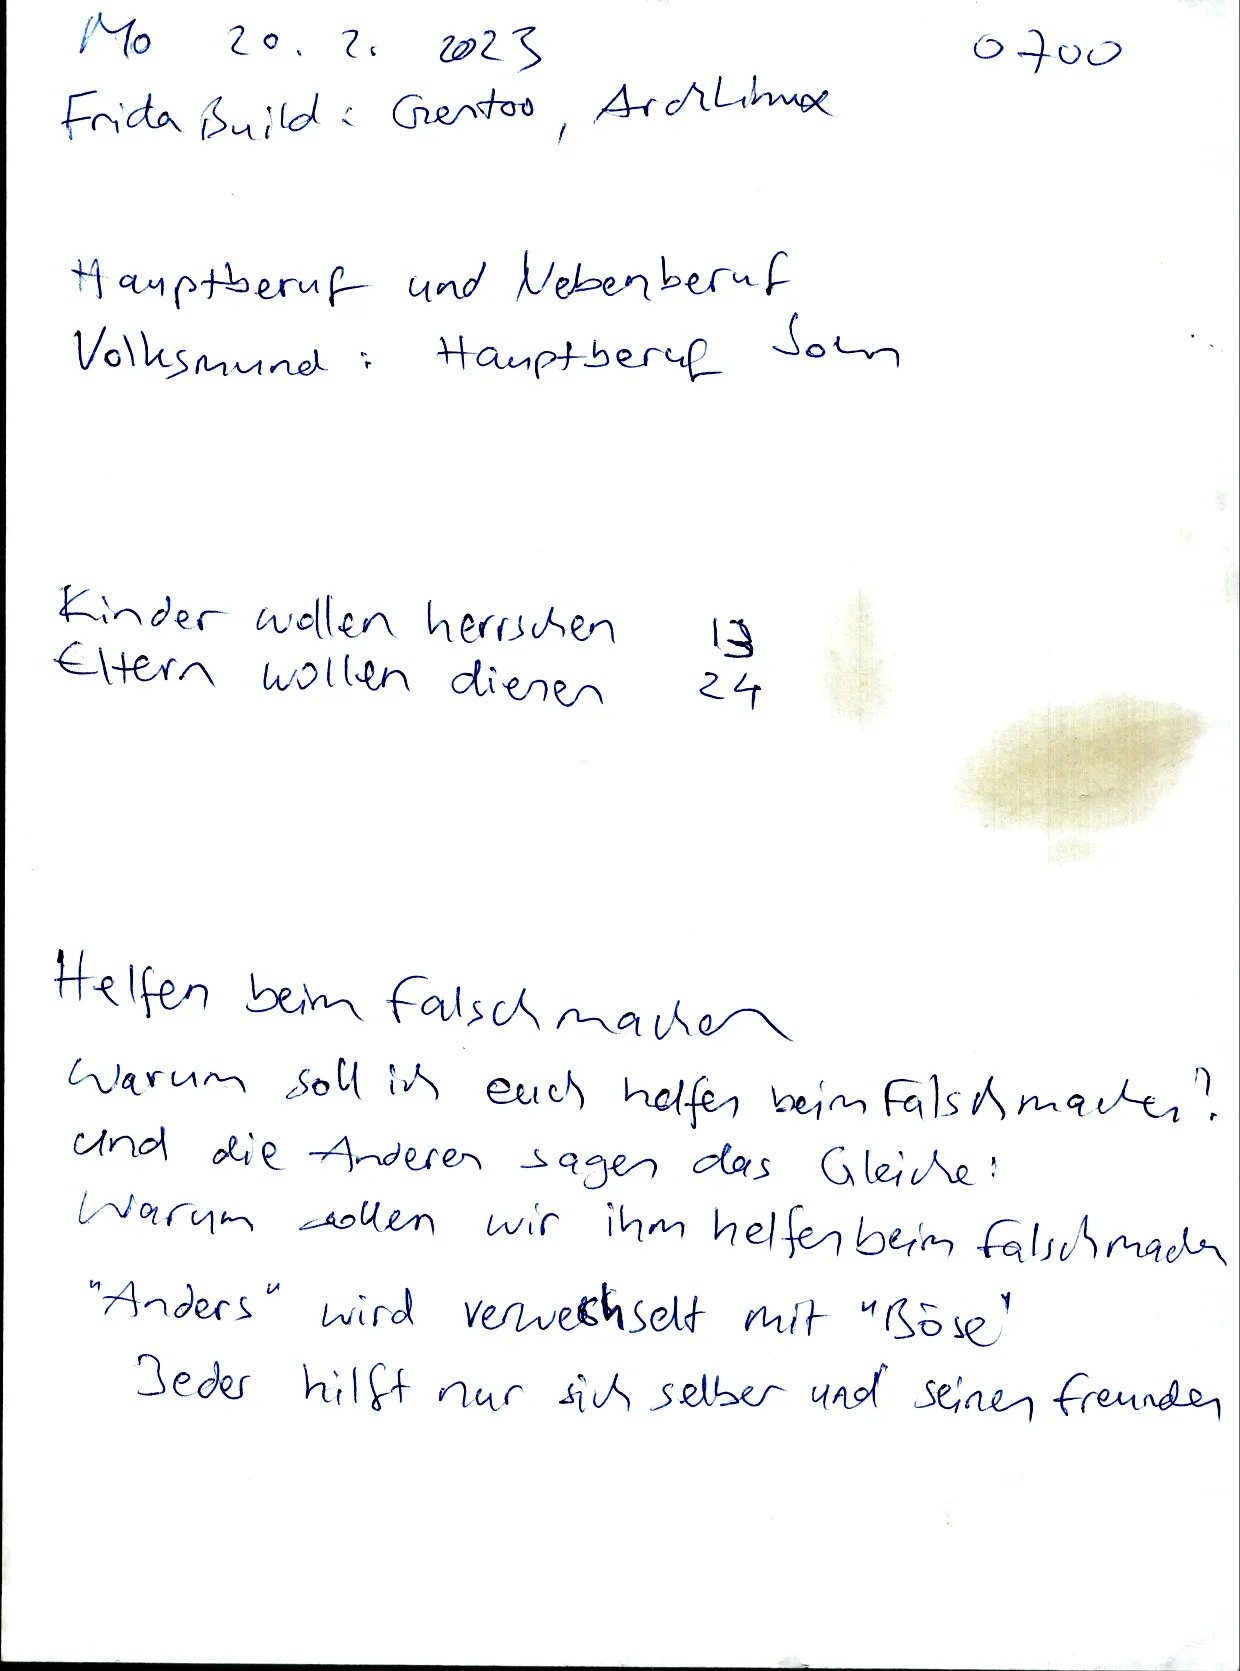 Mo 20. 2. 2023 0700
Frida Build: Gentoo, ArchLinux
Hauptberuf und Nebenberuf
Volksmund: Hauptberuf Sohn
Kinder wollen herrschen 13
Eltern wollen dienen 24
Helfen beim Falschmachen
Warum soll ich euch helfen beim Falschmachen?
Und die Anderen sagen das Gleiche:
Warum sollen wir ihm helfen beim Falschmachen
"Anders" wird verwechselt mit "Böse"
Jeder hilft nur sich selber und seinen Freunden